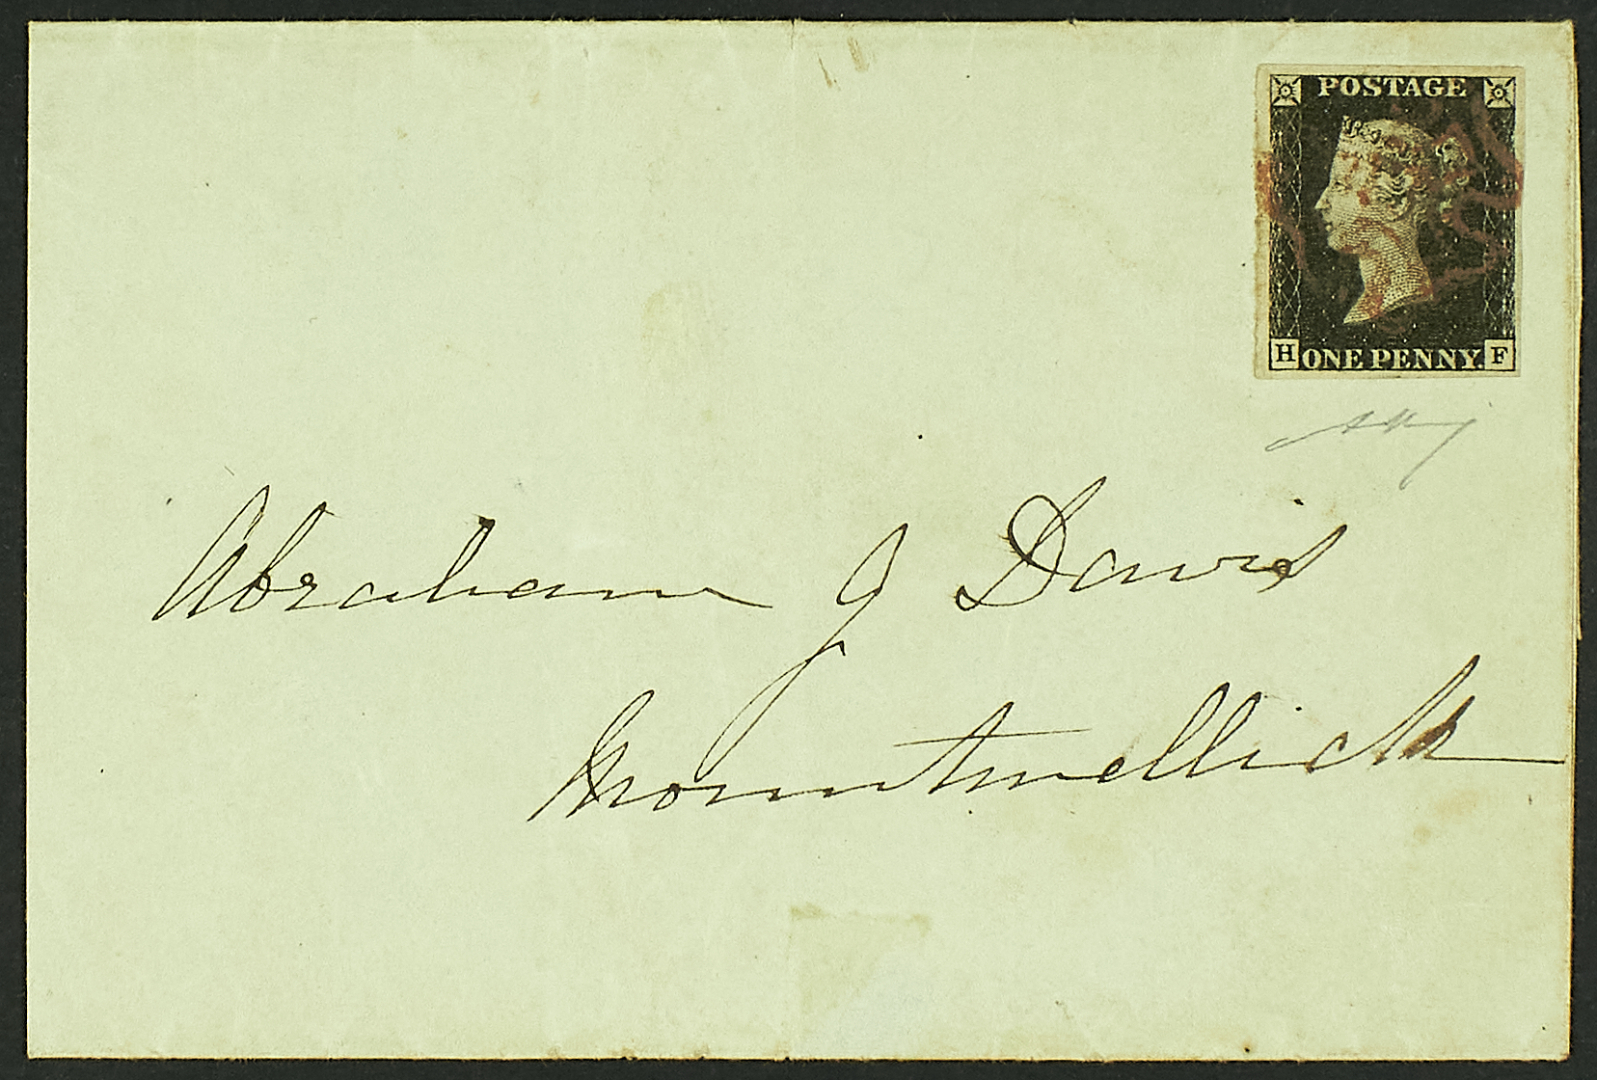 POSTAGE
H ONE PENNY. F
Abraham J Davis
Mountmellick